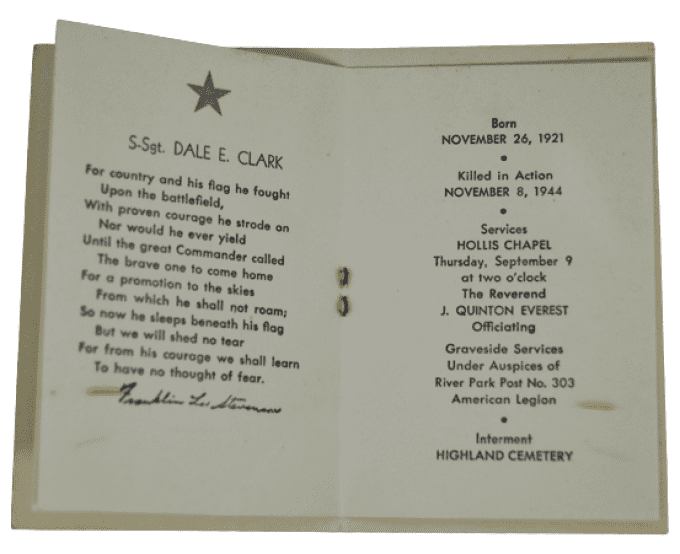 S-Sgt. DALE E. CLARK
For country and his flag he fought
Upon the battlefield,
With proven courage he strode on
Nor would he ever yield
Until the great Commander called
The brave one to come home
For a promotion to the skies
From which he shall not roam;
So now he sleeps beneath his flag
But we will shed no tear
For from his courage we shall learn
To have no thought of fear.
Franklin Lee Stevenson
Born
NOVEMBER 26, 1921
•
Killed in Action
NOVEMBER 8, 1944
•
Services
HOLLIS CHAPEL
Thursday, September 9
at two o'clock
The Reverend
J. QUINTON EVEREST
Officiating
Graveside Services
Under Auspices of
River Park Post No. 303
American Legion
•
Interment
HIGHLAND CEMETERY